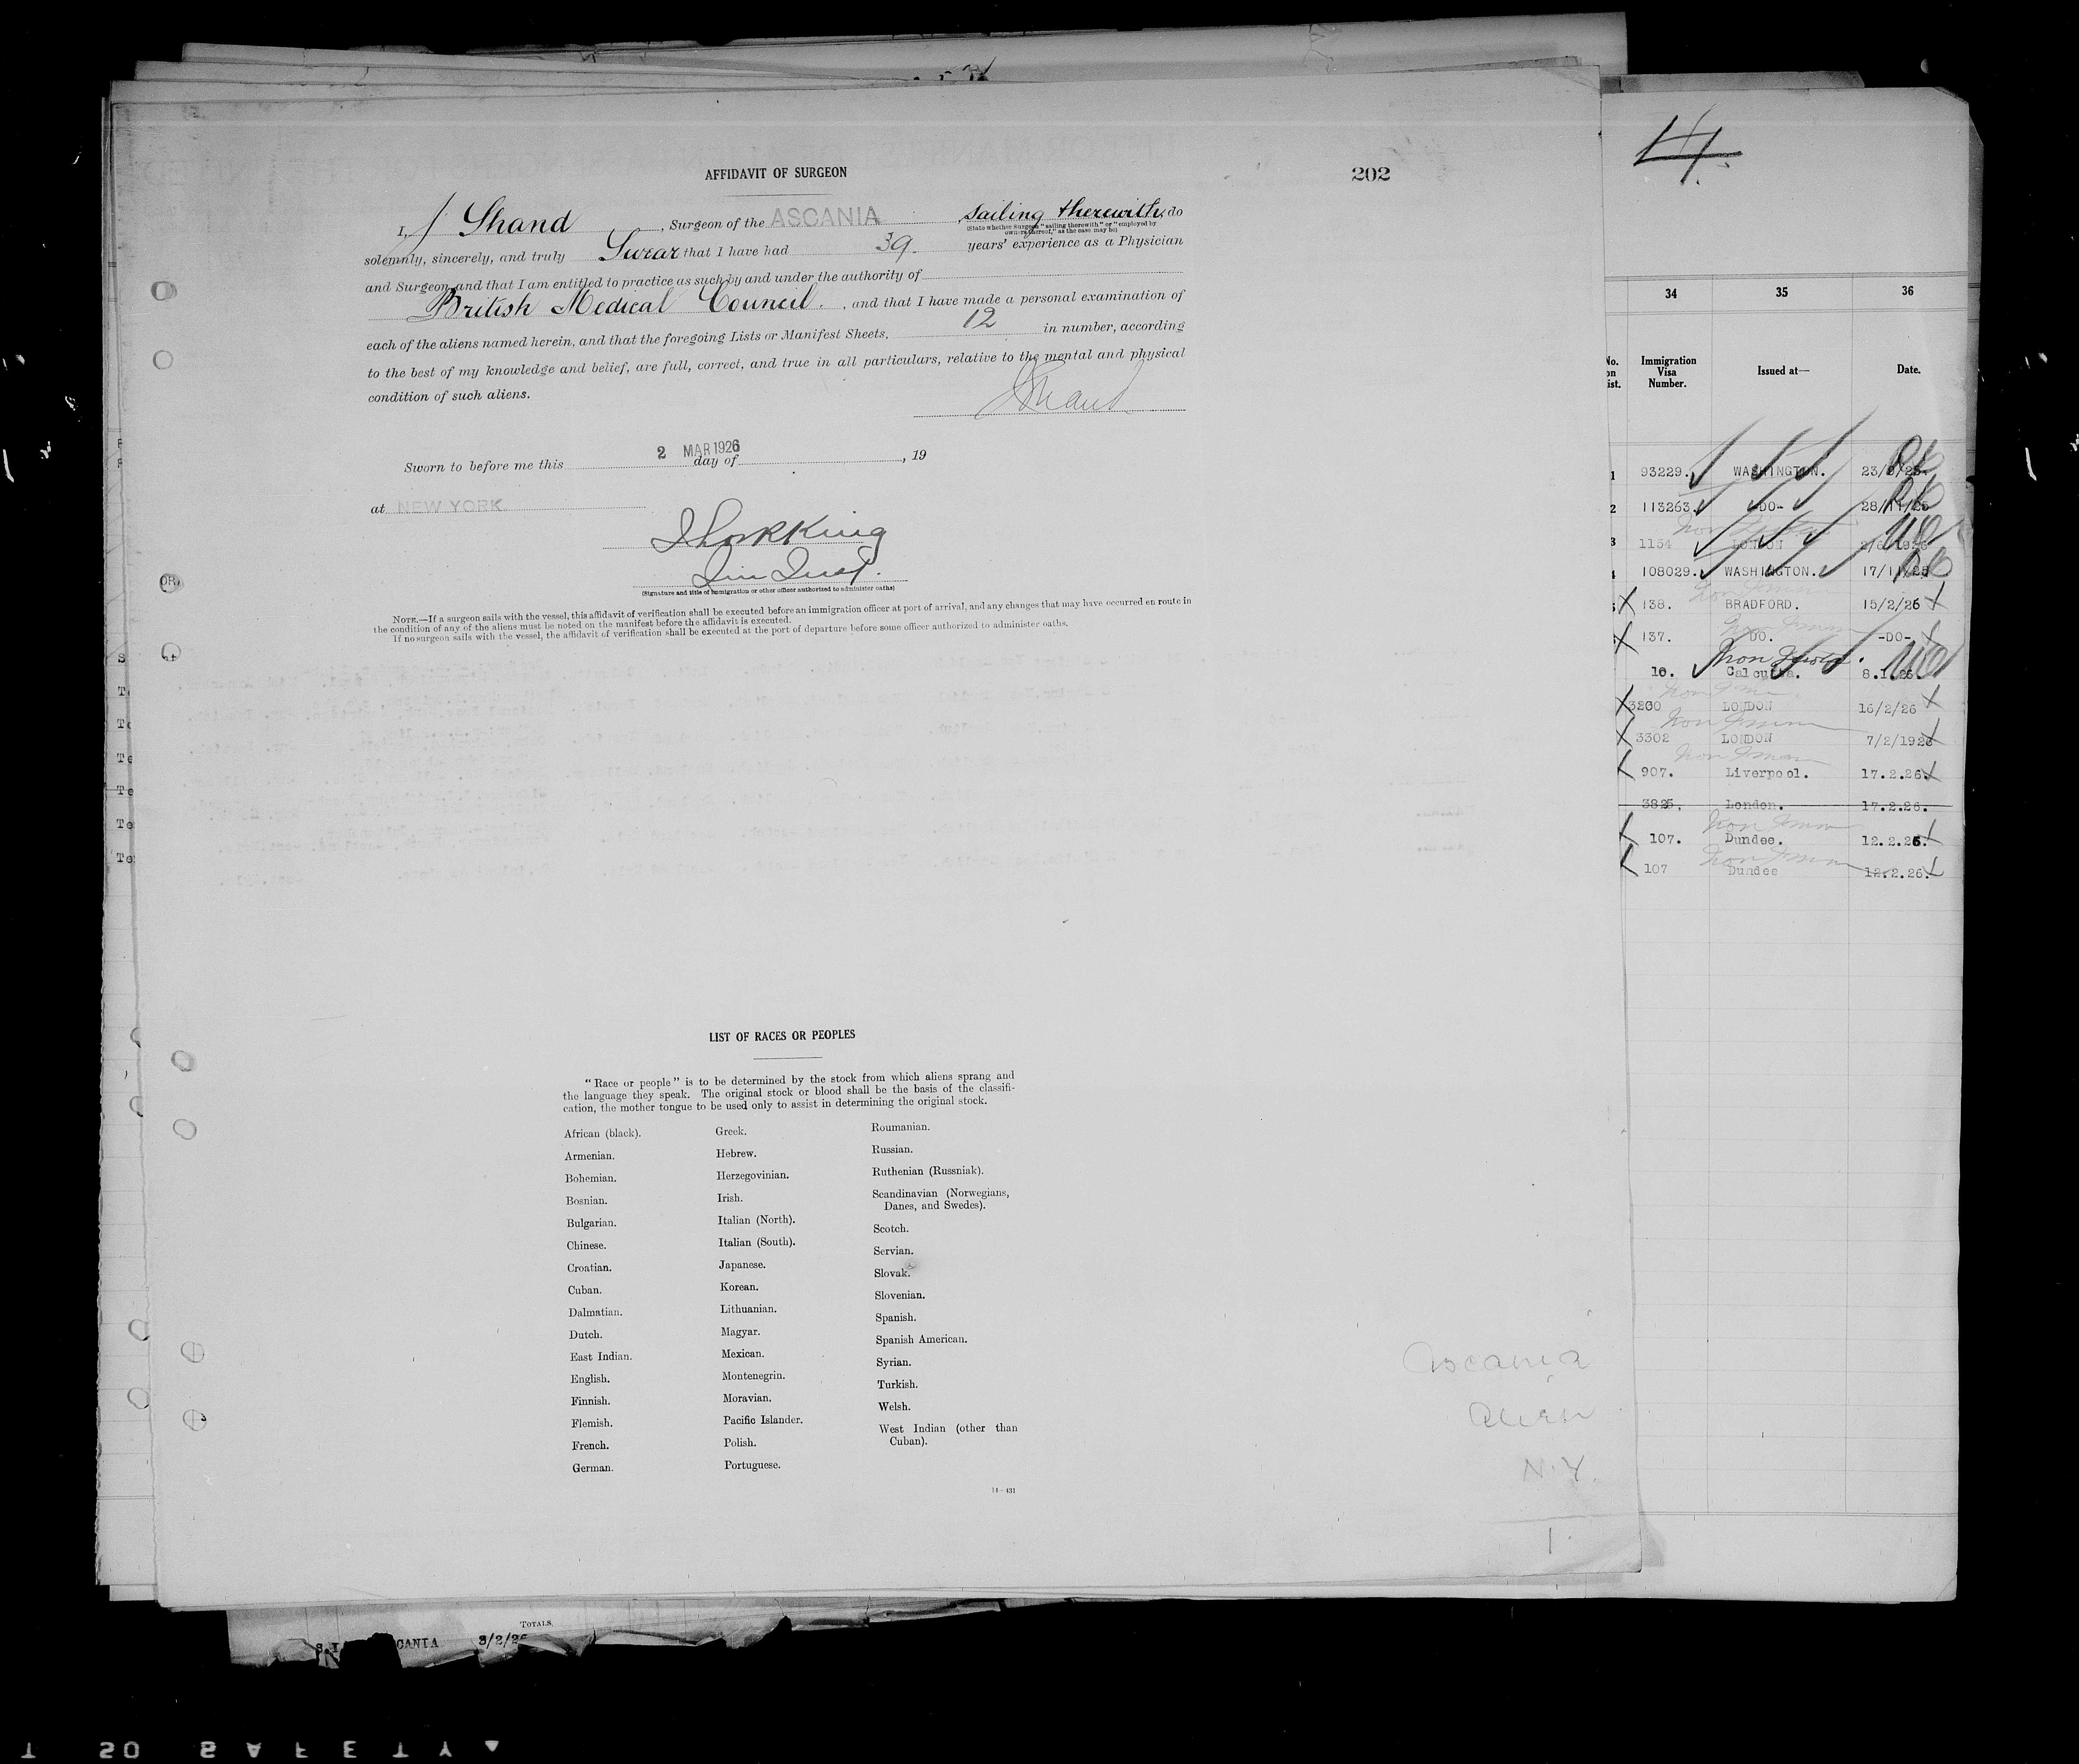 AFFIDAVIT OF SURGEON
202
I, J Shand, Surgeon of the ASCANIA sailing therewith, do
(State whether Surgeon "sailing therewith" or "employed by
owners thereof," as the case may be)
solemnly, sincerely, and truly Swear that I have had 39. years' experience as a Physician
and Surgeon and that I am entitled to practice as such by and under the authority of
British Medical Council., and that I have made a personal examination of
each of the aliens named herein, and that the foregoing Lists or Manifest Sheets, 12 in number, according
to the best of my knowledge and belief, are full, correct, and true in all particulars, relative to the mental and physical
condition of such aliens.
J Shand
Sworn to before me this 2 MAR 1926 day of , 19
at NEW YORK.
King
(Signature and title of immigration or other officer authorized to administer oaths)
NOTE.—If a surgeon sails with the vessel, this affidavit of verification shall be executed before an immigration officer at port of arrival, and any changes that may have occurred en route in
the condition of any of the aliens must be noted on the manifest before the affidavit is executed.
If no surgeon sails with the vessel, the affidavit of verification shall be executed at the port of departure before some officer authorized to administer oaths.
LIST OF RACES OR PEOPLES
"Race or people" is to be determined by the stock from which aliens sprang and
the language they speak. The original stock or blood shall be the basis of the classifi-
cation, the mother tongue to be used only to assist in determining the original stock.
African (black).
Armenian.
Bohemian.
Bosnian.
Bulgarian.
Chinese.
Croatian.
Cuban.
Dalmatian.
Dutch.
East Indian.
English.
Finnish.
Flemish.
French.
German.
Greek.
Hebrew.
Herzegovinian.
Irish.
Italian (North).
Italian (South).
Japanese.
Korean.
Lithuanian.
Magyar.
Mexican.
Montenegrin.
Moravian.
Pacific Islander.
Polish.
Portuguese.
Roumanian.
Russian.
Ruthenian (Russniak).
Scandinavian (Norwegians,
Danes, and Swedes).
Scotch.
Servian.
Slovak.
Slovenian.
Spanish.
Spanish American.
Syrian.
Turkish.
Welsh.
West Indian (other than
Cuban).
14—431
Ascania
Alien
N.Y.
1.
4.
34 35 36
Immigration Visa Number. Issued at— Date.
93229. WASHINGTON. 23/9/25.
113263. -DO- 28/11/25
1154 LONDON
108029. WASHINGTON. 17/11/25
138. BRADFORD. 15/2/26
137. DO. -DO-
10. Calcutta. 8.1.26.
LONDON 16/2/26
3302 LONDON 7/2/1926
907. Liverpool. 17.2.26.
3825. London. 17.2.26.
107. Dundee. 12.2.26.
107 Dundee 12.2.26.
TOTALS
CANIA 3/2/26
T 50 SAFETY